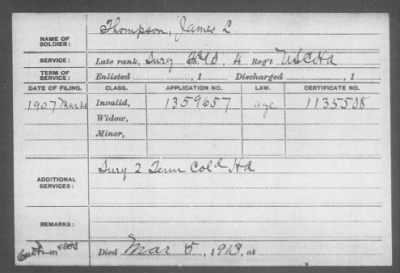 NAME OF SOLDIER: Thompson, James L
SERVICE: Late rank, Surg 4 Reg't USCHA
TERM OF SERVICE: Enlisted , 1 Discharged , 1
DATE OF FILING. CLASS. APPLICATION NO. LAW. CERTIFICATE NO.
1907 Invalid, 1359657 age 1135538
Widow,
Minor,
ADDITIONAL SERVICES: Surg 2 Tenn Col'd HA
REMARKS:
Died Mar 5, 1913, at